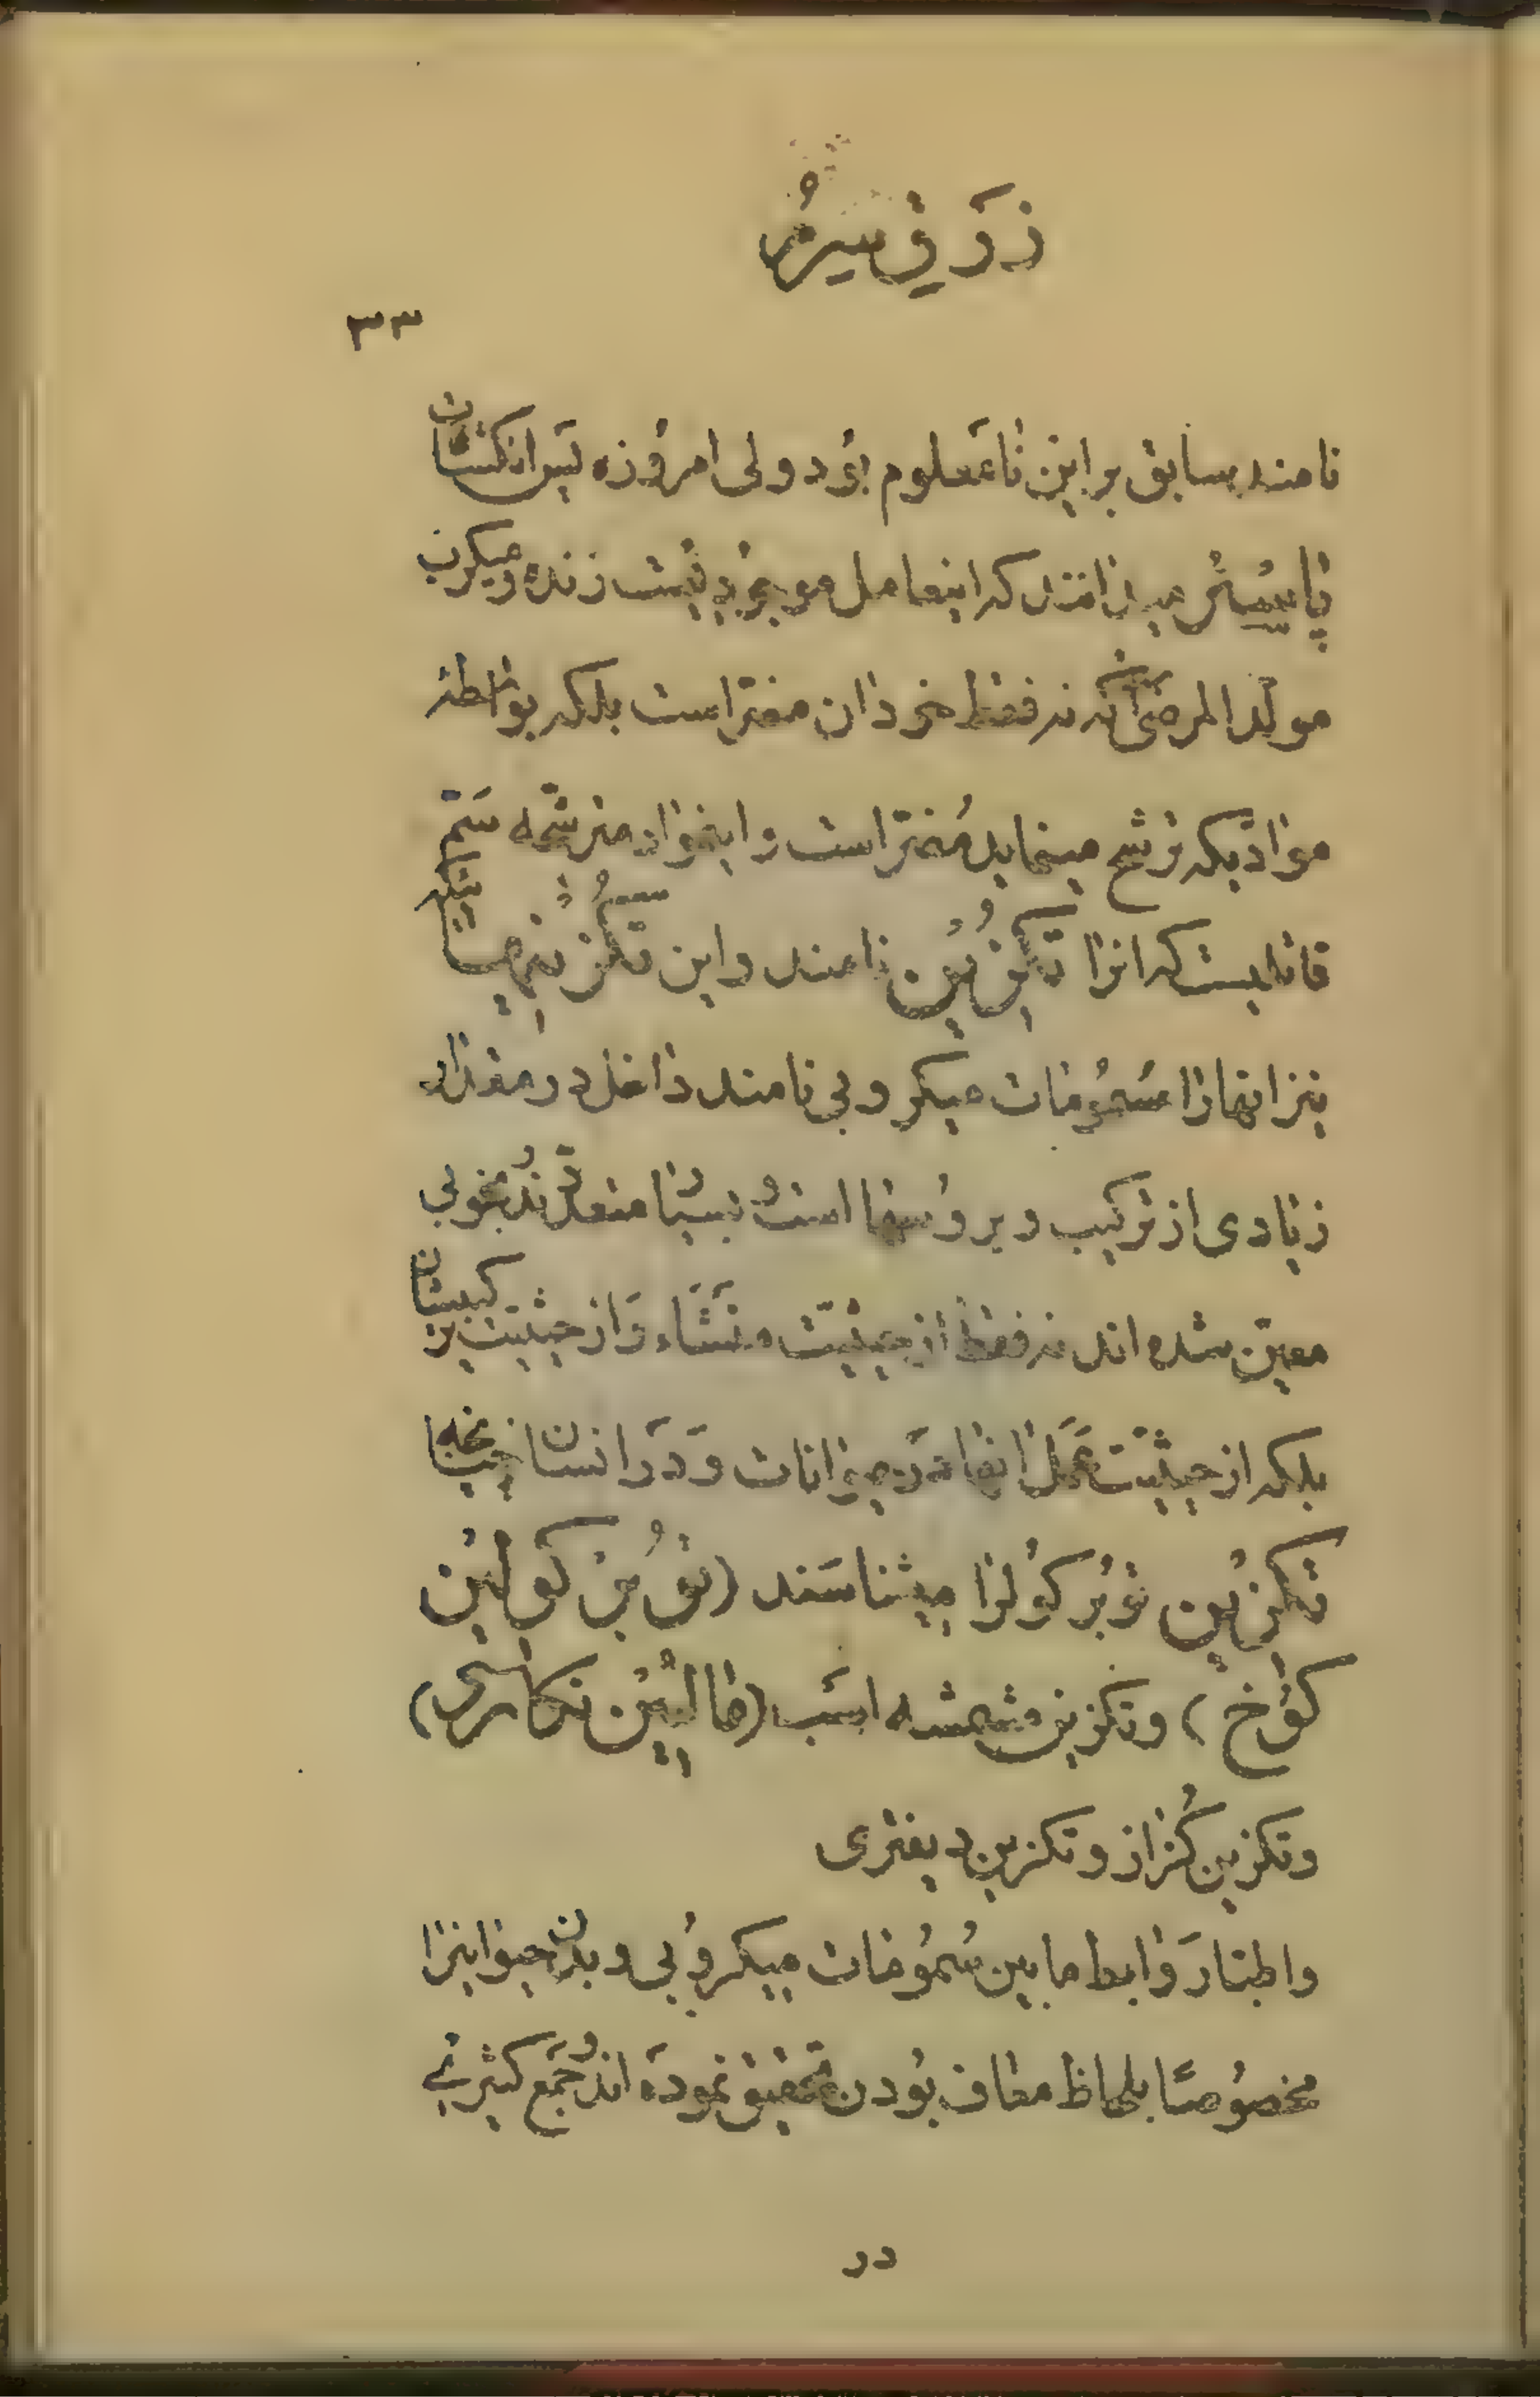 در تزریق سیرم
۳۳
نامند سابق بر این نامعلوم بود ولی امروزه پس از انکشافات
پاستر میدانند که اینعامل موجودیست زنده و میکرب
مولد المرضی که نه فقط خود آن مضر است بلکه بواسطهٔ
موادیکه ترشح مینماید مضر است و اینمواد مترشحه سم
قاتلیست که انرا تکزین نامند و این تکزینها یا بیکدیگر
نیز انها را سمومات میکروبی نامند داخل در مقدار
زیادی از ترکیب ویروسها است و بسیار متعدد و بخوبی
معین شده اند نه فقط از حیثیت منشاء و از حیثیت ترکیبشان
بلکه از حیثیت عمل انها در حیوانات و در انسان چنانچه
تکزین توبرکول را میشناسند (توبرکولین
کوخ) و تکزین مشمشه اسب (مالیین نکار)
و تکزین کزاز و تکزین دیفتری
والبته روابط مابین سمومات میکروبی و بدن حیوانیرا
مخصوصا بلحاظ معاف بودن تحقیق نموده اند و جمع کثیری
در